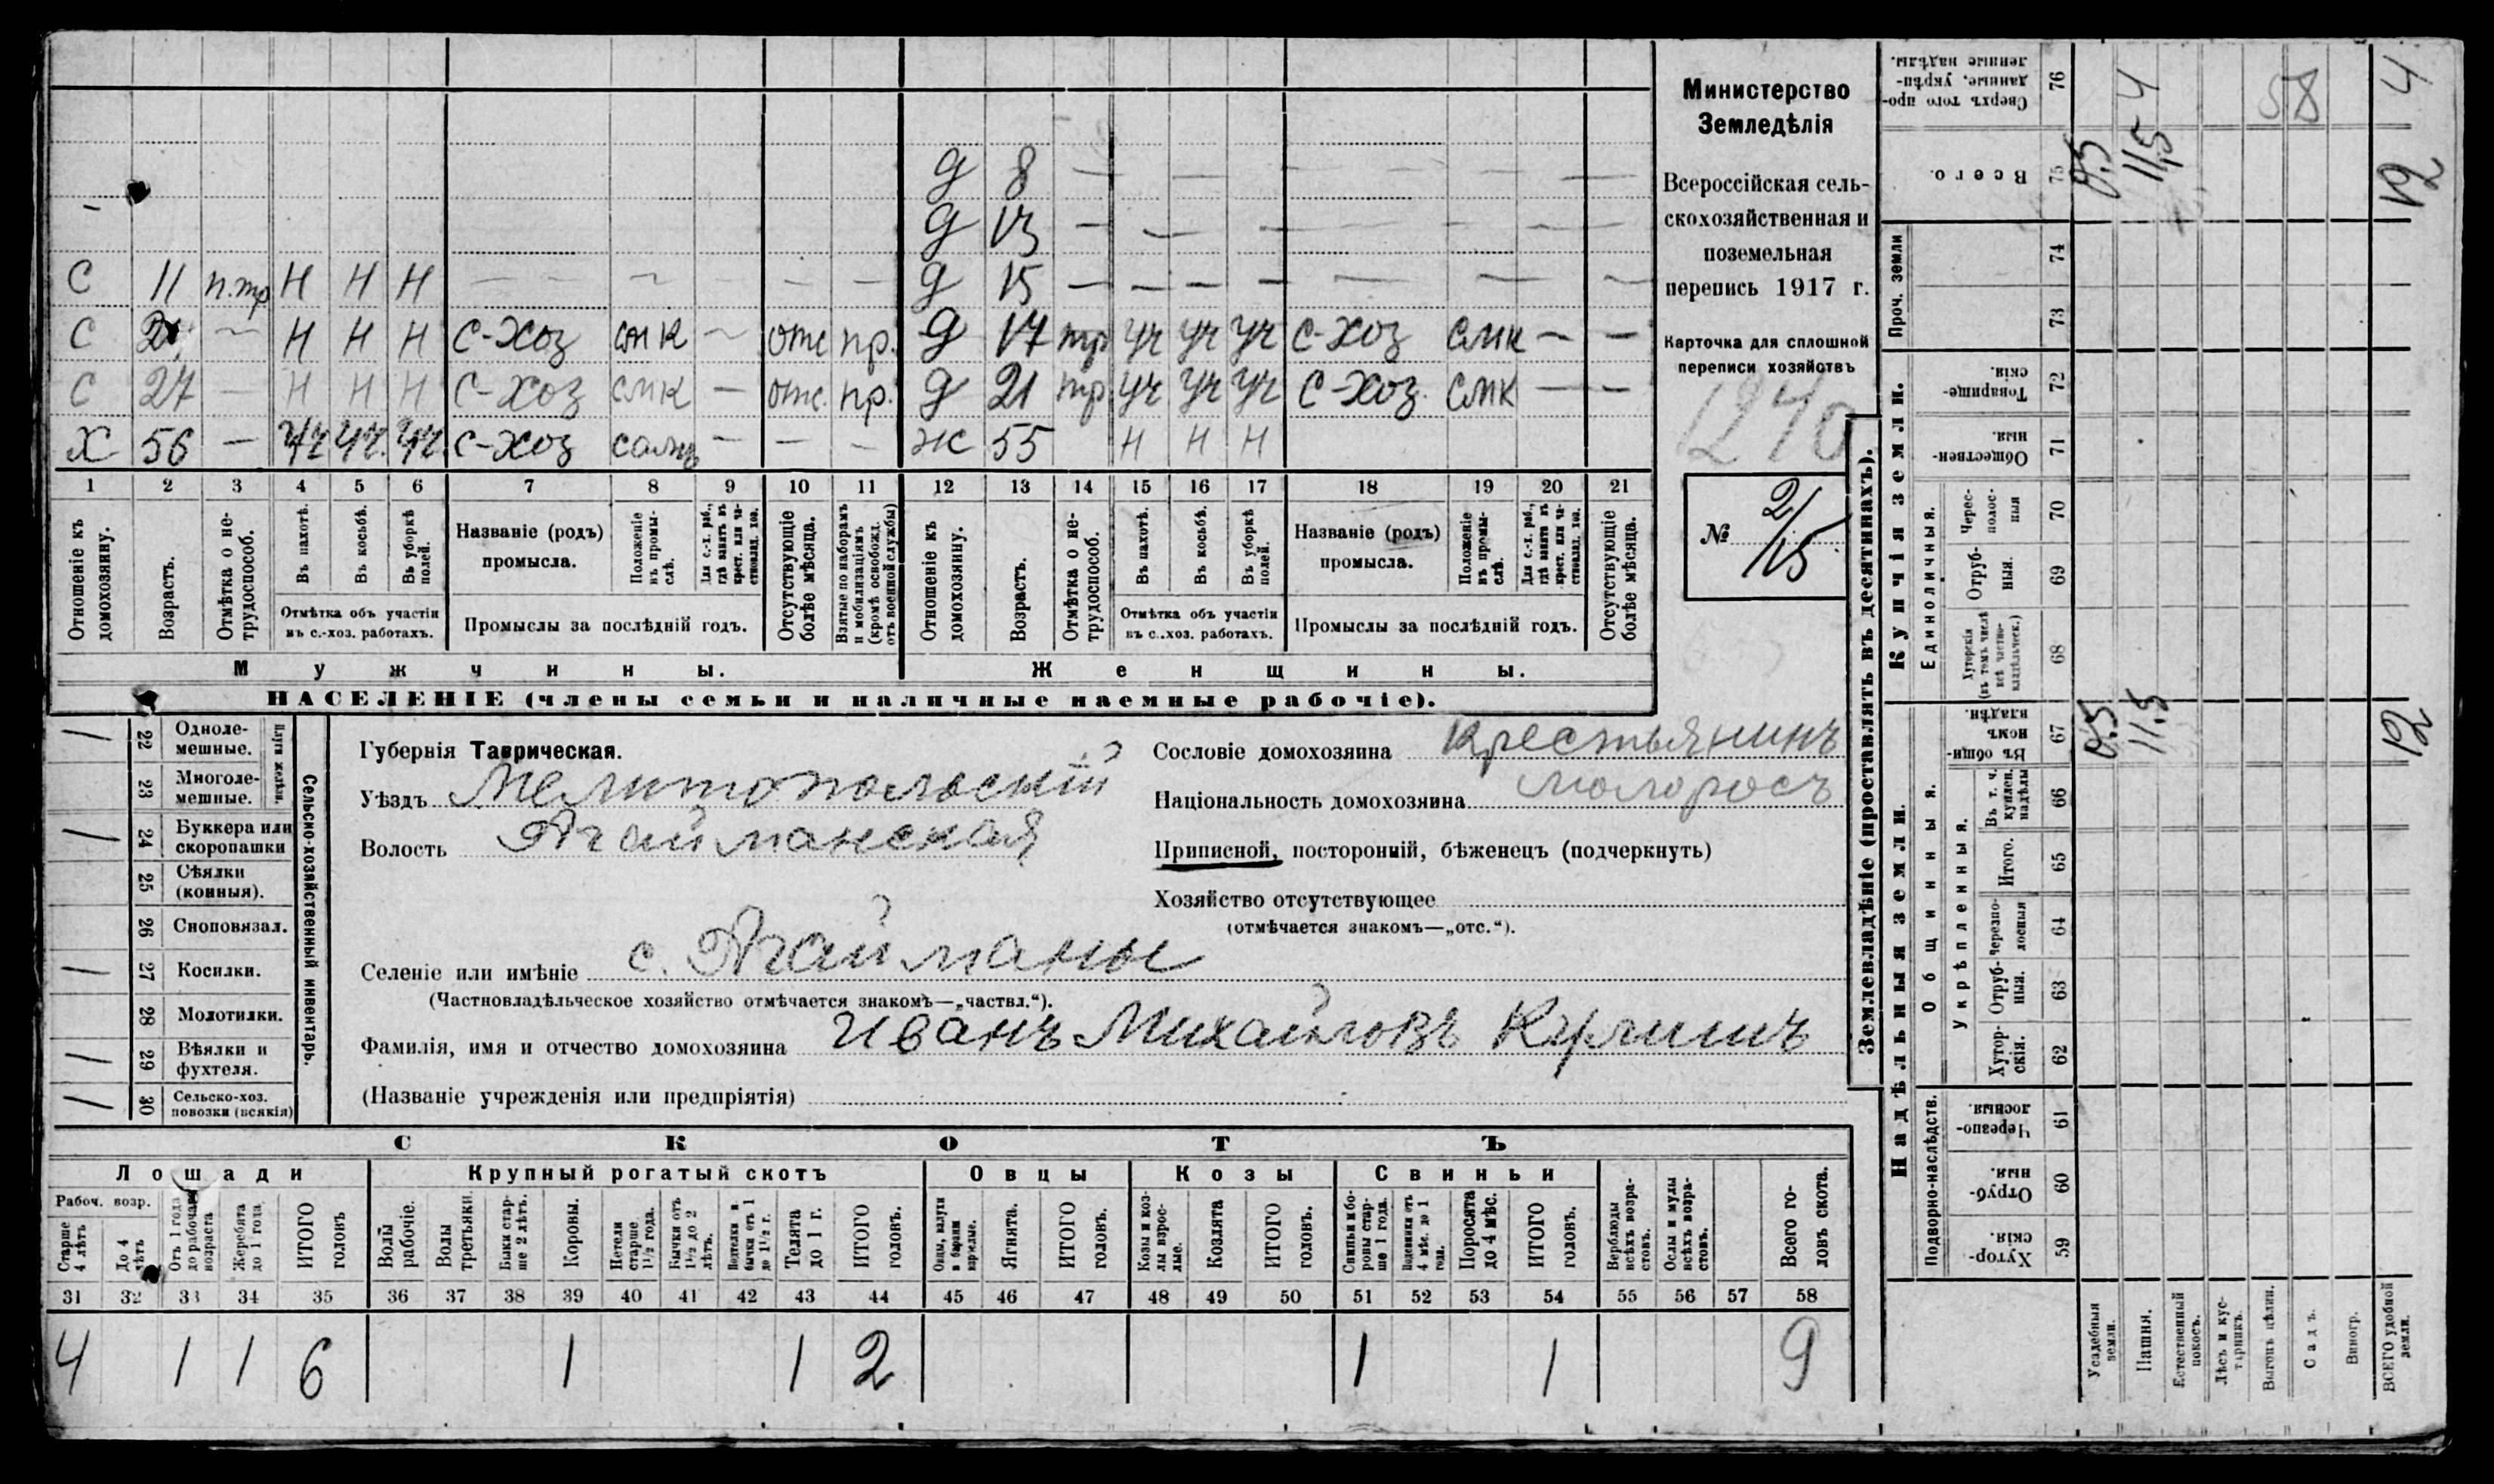 д 8 — — — — — — — —
— д 13 — — — — — — — —
с 11 п.тр Н Н Н — — — — — д 15 — — — — — — — —
с — Н Н Н с-хоз смк — отс пр. д 17 тр уч уч уч с-хоз смк — —
с 27 — Н Н Н с-хоз смк — отс. пр. д 21 тр уч уч уч с-хоз смк — —
Х 56 — уч уч. уч. с-хоз — — — ж 55 Н Н Н
1 2 3 4 5 6 7 8 9 10 11 12 13 14 15 16 17 18 19 20 21
Отношеніе къ домохозяину.
Возрастъ.
Отмѣтка о не-
трудоспособ.
Въ пахотѣ.
Въ косьбѣ.
Въ уборкѣ
полей.
Отмѣтка объ участіи
въ с.-хоз. работахъ.
Названіе (родъ)
промысла.
Положеніе
въ промы-
слѣ.
Для с.-х. раб.,
гдѣ занятъ въ
крест. или ча-
стновлад. хоз.
Промыслы за послѣдній годъ.
Отсутствующіе
болѣе мѣсяца.
Взятые по наборамъ
и мобилизаціямъ
(кромѣ освобожд.
отъ военной службы)
Отношеніе къ
домохозяину.
Возрастъ.
Отмѣтка о не-
трудоспособ.
Въ пахотѣ.
Въ косьбѣ.
Въ уборкѣ
полей.
Отмѣтка объ участіи
въ с.-хоз. работахъ.
Названіе (родъ)
промысла.
Положеніе
въ промы-
слѣ.
Для с.-х. раб.,
гдѣ занятъ въ
крест. или ча-
стновлад. хоз.
Промыслы за послѣдній годъ.
Отсутствующіе
болѣе мѣсяца.
Мужчины.
Женщины.
НАСЕЛЕНІЕ (члены семьи и наличные наемные рабочіе).
Министерство
Земледѣлія
Всероссійская сель-
скохозяйственная и
поземельная
перепись 1917 г.
Карточка для сплошной
переписи хозяйствъ
1240
№ 2/15
Сельско-хозяйственный инвентарь.
Плуги желѣзн.
/ 22 Одноле-
мешные.
23 Многоле-
мешные.
/ 24 Буккера или
скоропашки
25 Сѣялки
(конныя).
26 Сноповязал.
/ 27 Косилки.
28 Молотилки.
/ 29 Вѣялки и
фухтеля.
/ 30 Сельско-хоз.
повозки (всякія)
Губернія Таврическая.
Уѣздъ Мелитопольскій
Волость Агайманская
Селеніе или имѣніе с. Агайманы
(Частновладѣльческое хозяйство отмѣчается знакомъ—„частвл.“).
Фамилія, имя и отчество домохозяина Иванъ Михайловъ
(Названіе учрежденія или предпріятія)
Сословіе домохозяина Крестьянинъ
Національность домохозяина малоросъ
Приписной, посторонній, бѣженецъ (подчеркнуть)
Хозяйство отсутствующее
(отмѣчается знакомъ—„отс.“).
СКОТЪ
Лошади
Крупный рогатый скотъ
Овцы
Козы
Свиньи
Рабоч. возр.
Старше
4 лѣтъ
До 4
лѣтъ
Отъ 1 года
до рабочаго
возраста
Жеребята
до 1 года
ИТОГО
головъ
Волы
рабочіе.
Волы
третьяки.
Быки стар-
ше 2 лѣтъ.
Коровы.
Нетели
старше
1½ года.
Бычки отъ
1½ до 2
лѣтъ.
Телята
до 1 г.
ИТОГО
головъ.
Ягнята.
ИТОГО
головъ.
Козы и коз-
лы взрос-
лые.
Козлята
ИТОГО
головъ.
Свиньи и бо-
ровы стар-
ше 1 года.
Поросята
до 4 мѣс.
ИТОГО
головъ.
Верблюды
всѣхъ возра-
стовъ.
Ослы и мулы
всѣхъ возра-
стовъ.
Всего го-
ловъ скота.
31 32 33 34 35 36 37 38 39 40 41 42 43 44 45 46 47 48 49 50 51 52 53 54 55 56 57 58
4 1 1 6 1 1 2 1 1 9
Землевладѣніе (проставлять въ десятинахъ).
Сверхъ того про-
данные, укрѣп-
ленные надѣлы.
76 4 58 4
Всего.
75 0,5 11,5 12
Проч. земли
74
73
Купчія земли.
Товарище-
скія.
72
Обществен-
ныя.
71
Единоличныя.
Черес-
полос-
ныя
70
Отруб-
ныя.
69
Хуторскія
(въ томъ числѣ
всѣ частно-
владѣльческ.)
68
Надѣльныя земли.
Общинныя.
Въ общин-
номъ
владѣн.
67 0,5 11,5 12
Укрѣпленныя.
Въ т. ч.
куплен.
надѣлы
66
Итого.
65
Черезпо-
лосныя
64
Отруб-
ныя.
63
Хутор-
скія.
62
Подворно-наслѣдств.
Черезпо-
лосныя.
61
Отруб-
ныя.
60
Хутор-
скія.
59
Усадебныя
земли.
Пашня.
Естественный
покосъ.
Лѣсъ и кус-
тарникъ.
Выгонъ цѣлин.
Садъ.
Виногр.
ВСЕГО удобной
земли.